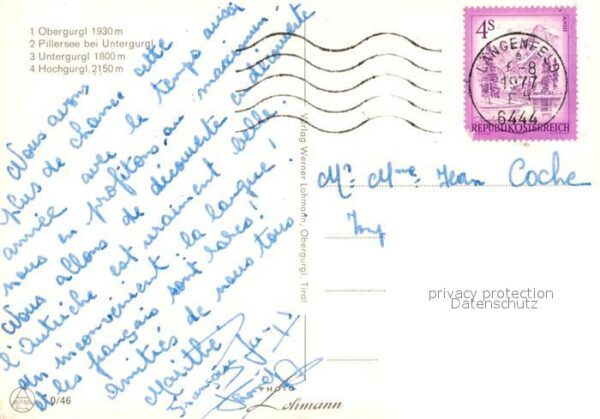 1 Obergurgl 1930 m
2 Pillersee bei Untergurgl
3 Untergurgl 1800 m
4 Hochgurgl 2150 m
Nous avons cette
plus de chance
année avec le temps aussi
nous en profitons au maximum
Nous allons de découverte en découverte
l'Autriche est vraiment belle!
un inconvénient la langue!
et les français sont rares!
Amitiés de nous tous
Maïthé
François
4 S
REPUBLIK ÖSTERREICH
LÄNGENFELD
-8
1977
6444
Verlag Werner Lohmann, Obergurgl, Tirol
Mr Mme Jean Coche
Imp
privacy protection
Datenschutz
0/46
PHOTO
Lohmann